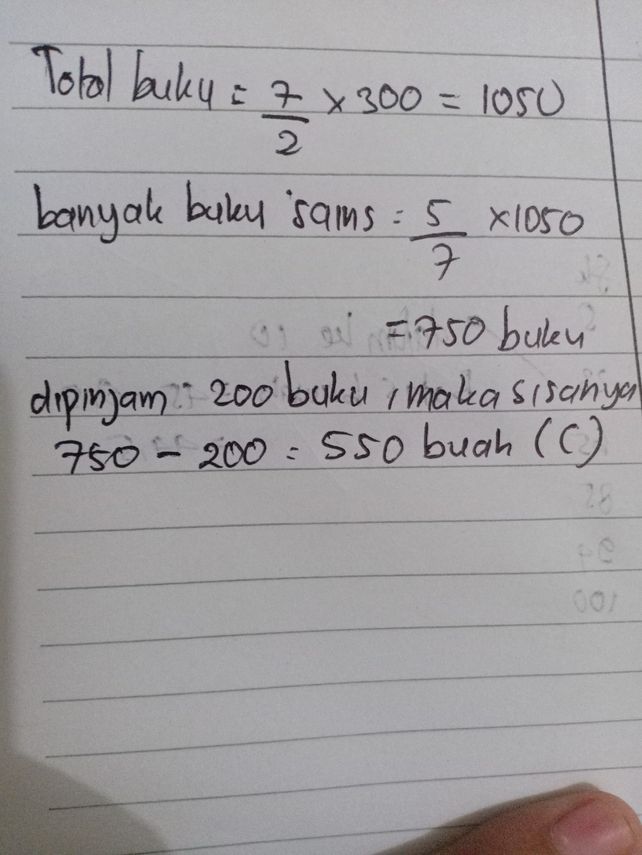 Total buku = 7/2 × 300 = 1050
banyak buku sains = 5/7 × 1050
= 750 buku
dipinjam = 200 buku, maka sisanya
750 - 200 = 550 buah (C)
85
94
100